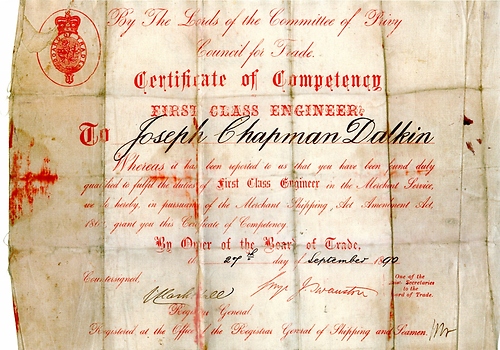 By The Lords of the Committee of Privy
Council for Trade.
Certificate of Competency
FIRST CLASS ENGINEER.
To Joseph Chapman Dalkin
Whereas it has been reported to us that you have been found duly
qualified to fulfil the duties of First Class Engineer in the Merchant Service,
we do hereby, in pursuance of the Merchant Shipping Act Amendment Act
186 grant you this Certificate of Competency.
By Order of the Board of Trade,
27th day of September 1890
Countersigned,
One of the
Secretaries
to the
Board of Trade.
Registrar General.
Registered at the Office of the Registrar General of Shipping and Seamen.